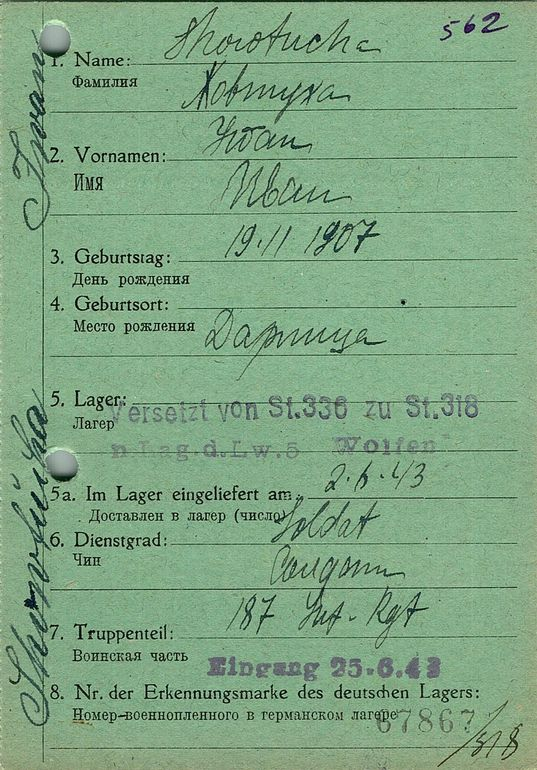 562
1. Name:
Фамилия
Ховтуха
2. Vornamen:
Имя
Iwan
Иван
3. Geburtstag: 19.11 1907
День рождения
4. Geburtsort:
Место рождения Дарница
5. Lager: Versetzt von St.336 zu St.318
Лагер
n.Lag.d.Lw.5 Wolfen
5a. Im Lager eingeliefert am: 2.6.43
Доставлен в лагер (число)
6. Dienstgrad: Soldat
Чин Солдат
7. Truppenteil: 187 Inf. Rgt
Воинская часть
Eingang 25.6.43
8. Nr. der Erkennungsmarke des deutschen Lagers:
Номер-военнопленного в германском лагере
67867/318
Iwan